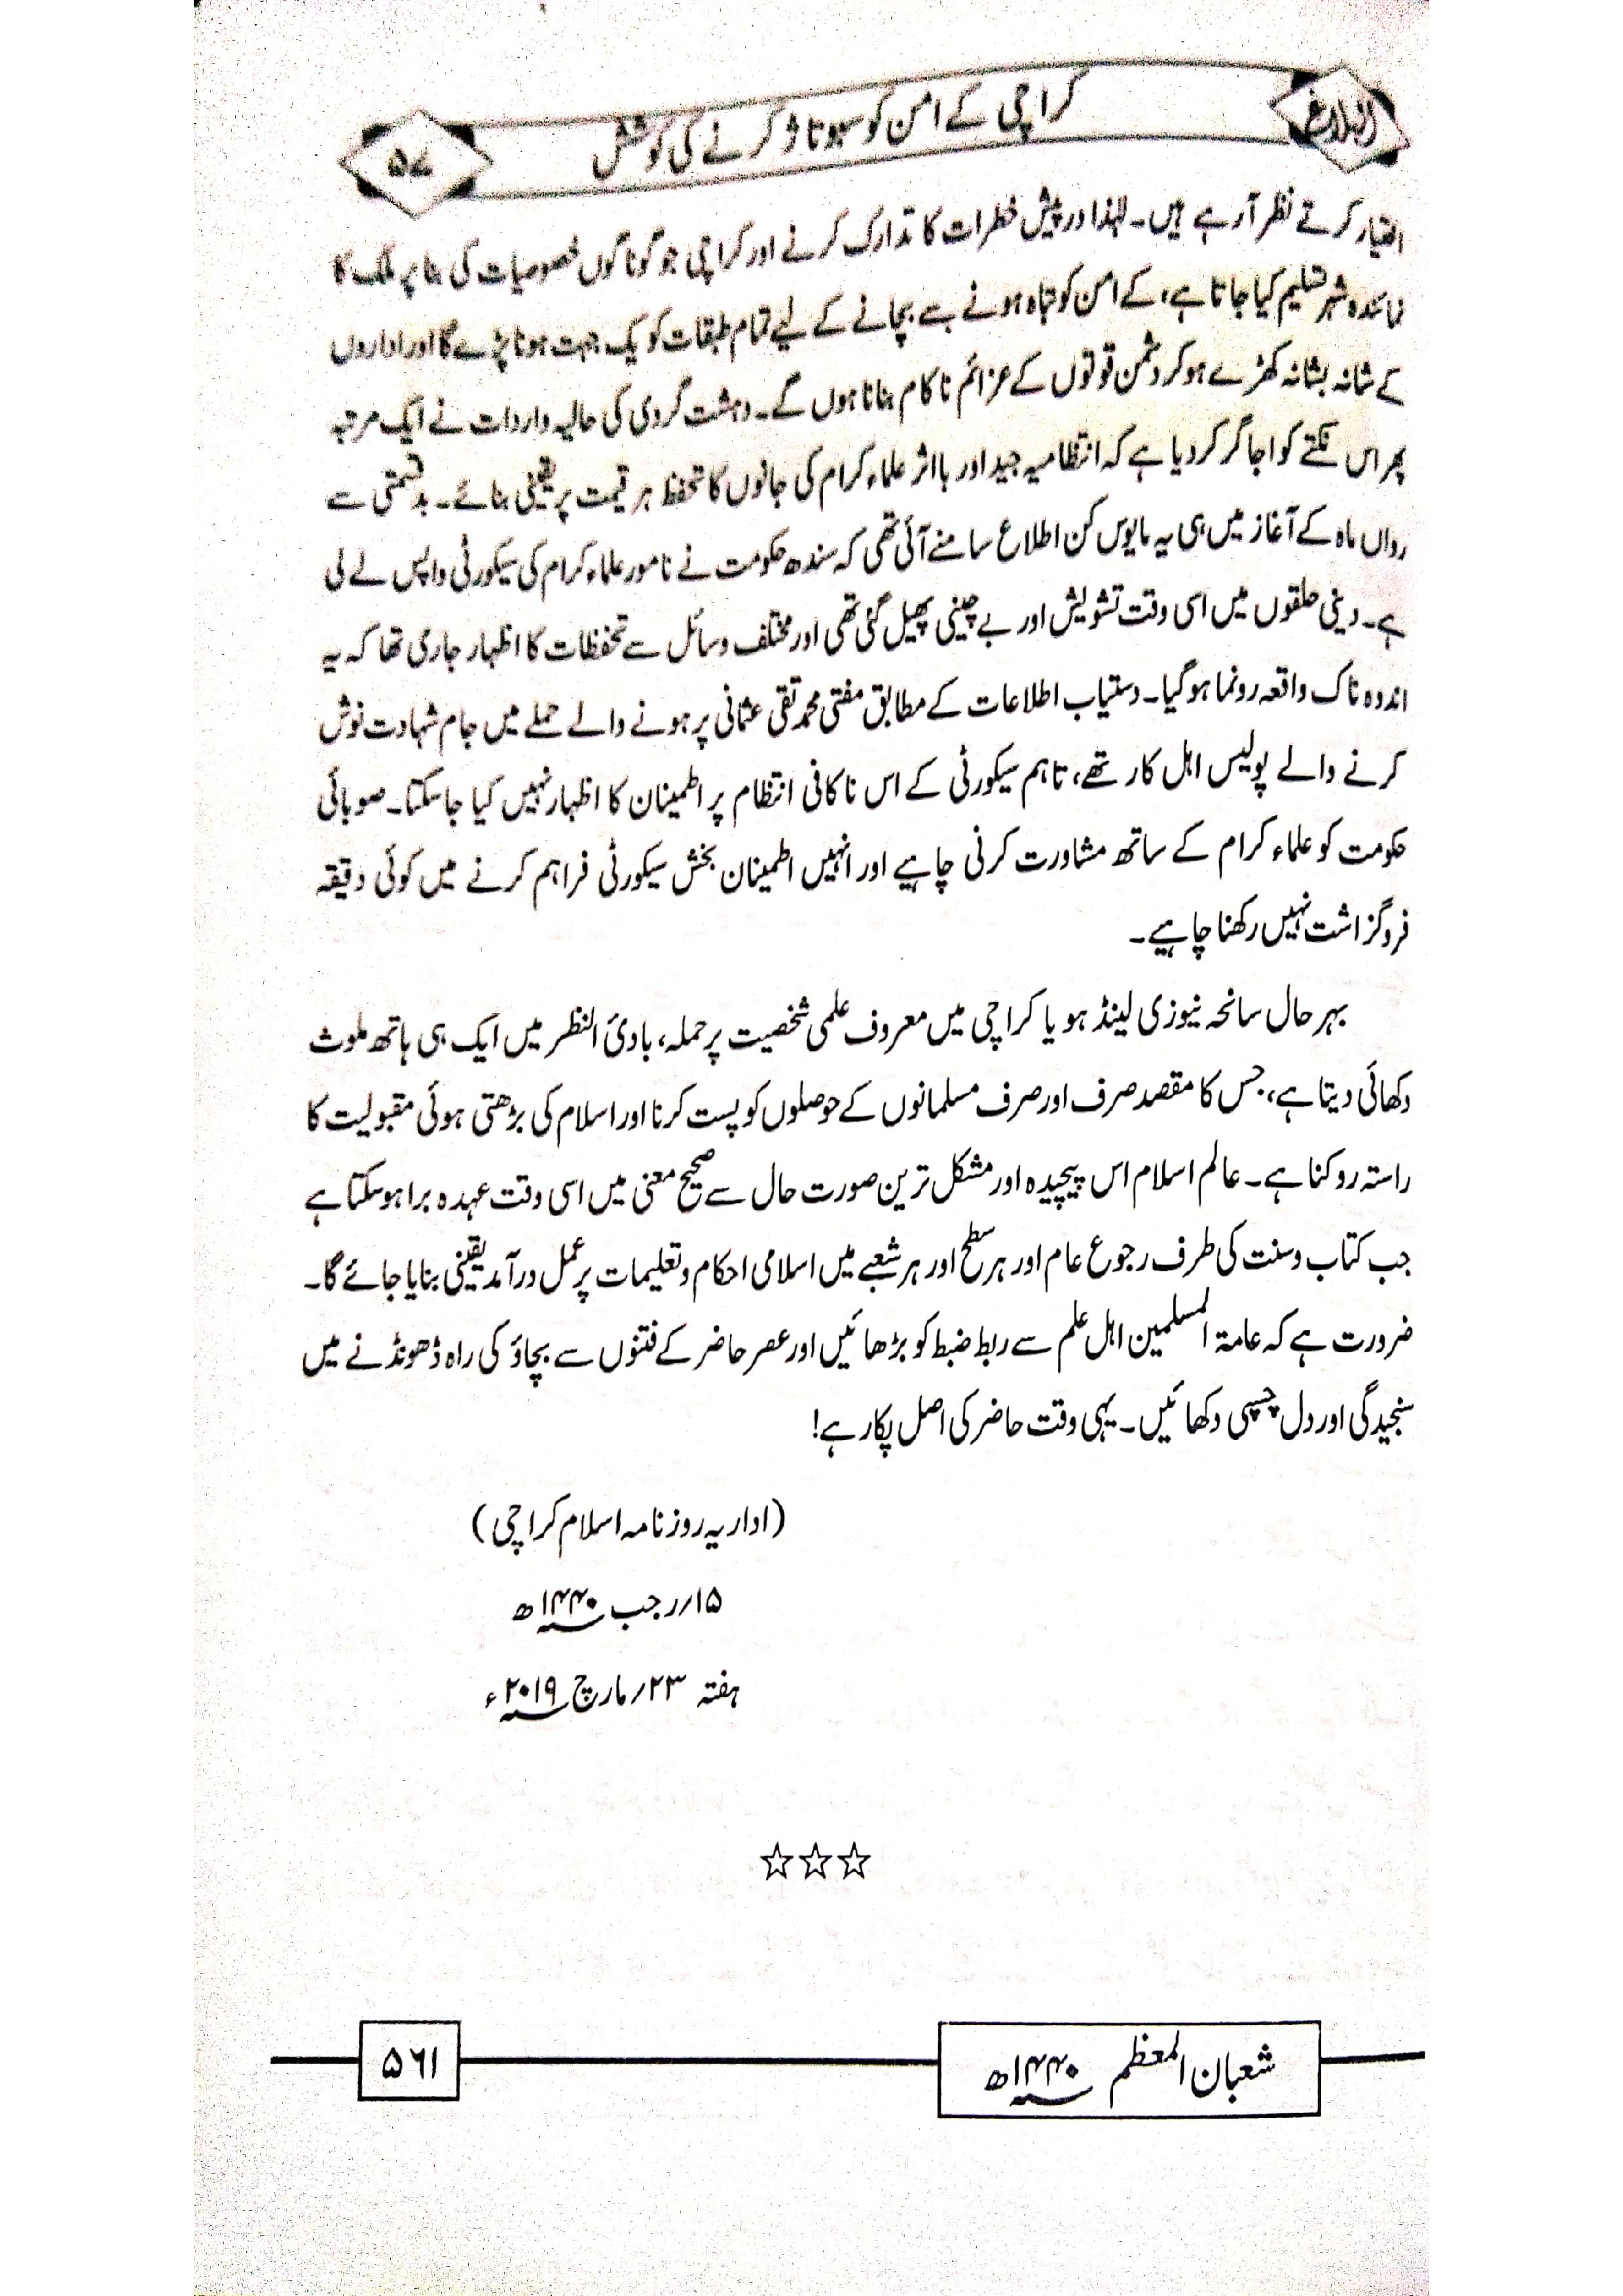 البلاغ
کراچی کے امن کو سبوتاژ کرنے کی کوشش
۵۷
اختیار کرتے نظر آرہے ہیں۔ لہٰذا درپیش خطرات کا تدارک کرنے اور کراچی جو گوناگوں خصوصیات کی بنا پر ملک کا
نمائندہ شہر تسلیم کیا جاتا ہے، کے امن کو تباہ ہونے سے بچانے کے لیے تمام طبقات کو یک جہت ہونا پڑے گا اور اداروں
کے شانہ بشانہ کھڑے ہوکر دشمن قوتوں کے عزائم ناکام بنانا ہوں گے۔ دہشت گردی کی حالیہ واردات نے ایک مرتبہ
پھر اس نکتے کو اجاگر کردیا ہے کہ انتظامیہ جید اور بااثر علماء کرام کی جانوں کا تحفظ ہر قیمت پر یقینی بنائے۔ بدقسمتی سے
رواں ماہ کے آغاز میں ہی یہ مایوس کن اطلاع سامنے آئی تھی کہ سندھ حکومت نے نامور علماء کرام کی سیکورٹی واپس لے لی
ہے۔ دینی حلقوں میں اسی وقت تشویش اور بے چینی پھیل گئی تھی اور مختلف وسائل سے تحفظات کا اظہار جاری تھا کہ یہ
اندوہ ناک واقعہ رونما ہوگیا۔ دستیاب اطلاعات کے مطابق مفتی محمد تقی عثمانی پر ہونے والے حملے میں جام شہادت نوش
کرنے والے پولیس اہل کار تھے، تاہم سیکورٹی کے اس ناکافی انتظام پر اطمینان کا اظہار نہیں کیا جاسکتا۔ صوبائی
حکومت کو علماء کرام کے ساتھ مشاورت کرنی چاہیے اور انہیں اطمینان بخش سیکورٹی فراہم کرنے میں کوئی دقیقہ
فروگزاشت نہیں رکھنا چاہیے۔
بہر حال سانحہ نیوزی لینڈ ہو یا کراچی میں معروف علمی شخصیت پر حملہ، بادیٔ النظر میں ایک ہی ہاتھ ملوث
دکھائی دیتا ہے، جس کا مقصد صرف اور صرف مسلمانوں کے حوصلوں کو پست کرنا اور اسلام کی بڑھتی ہوئی مقبولیت کا
راستہ روکنا ہے۔ عالم اسلام اس پیچیدہ اور مشکل ترین صورت حال سے صحیح معنی میں اسی وقت عہدہ برا ہوسکتا ہے
جب کتاب و سنت کی طرف رجوع عام اور ہر سطح اور ہر شعبے میں اسلامی احکام و تعلیمات پر عمل درآمد یقینی بنایا جائے گا۔
ضرورت ہے کہ عامۃ المسلمین اہل علم سے ربط ضبط کو بڑھائیں اور عصر حاضر کے فتنوں سے بچاؤ کی راہ ڈھونڈنے میں
سنجیدگی اور دل چسپی دکھائیں۔ یہی وقت حاضر کی اصل پکار ہے!
(اداریہ روزنامہ اسلام کراچی)
۱۵/رجب ۱۴۴۰ھ
ہفتہ ۲۳/مارچ ۲۰۱۹ء
☆☆☆
شعبان المعظم ۱۴۴۰ھ
۵۶۱